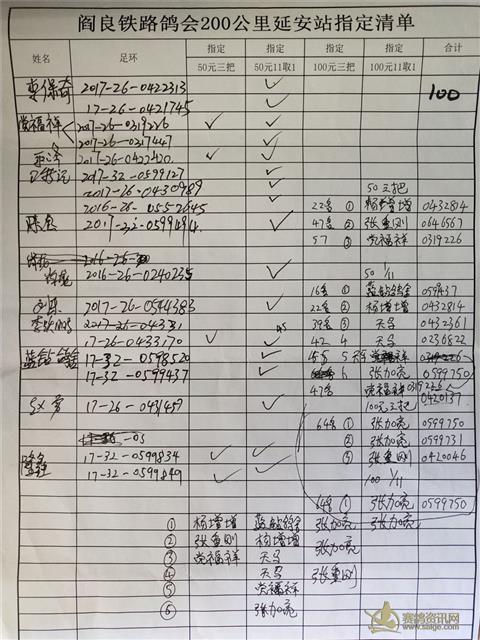 阎良铁路鸽会200公里延安站指定清单
姓名 足环 指定 50元三把 指定 50元11取1 指定 100元三把 指定 100元11取1 合计
2017-26-0422313 ✓ 100
17-26-0421745 ✓
党福祥 2017-26-0319226 ✓ ✓
2017-26-0217447 ✓
2017-26-0422420 ✓ ✓
2017-32-0599127 ✓
2017-26-0430989 ✓ 50元三把
2016-26-0552645 ✓ 22名 ① 杨增增 0432814
✓ 47名 ② 张重刚 0646567
57 ③ 党福祥 0319226
2016-26-0240235 ✓ 50 1/11
16名 ① 蓝钻鸽舍 0599437
2017-26-0544383 ✓ 22名 ② 杨增增 0432814
39名 ③ 天马 0432361
17-26-0433170 ✓ ✓ 42 4 天马 0236822
蓝钻鸽舍 17-32-0598520 ✓ 5
17-32-0599437 ✓ 6 张加亮 0599750
47名 党福祥 0319226
17-26-0431457 ✓ 100元三把 0420137
64名 ① 张加亮 0599750
② 张加亮 0599731
17-32-0599834 ✓ ✓ ③ 张重刚 0420046
17-32-0599849 ✓ ✓ 100 1/11
64名 ① 张加亮 0599750
① 杨增增 蓝钻鸽舍 张加亮 张加亮
② 张重刚 杨增增 张加亮
③ 党福祥 天马
④ 天马 张重刚
⑤ 党福祥
⑥ 张加亮
赛鸽资讯网
www.saige.com